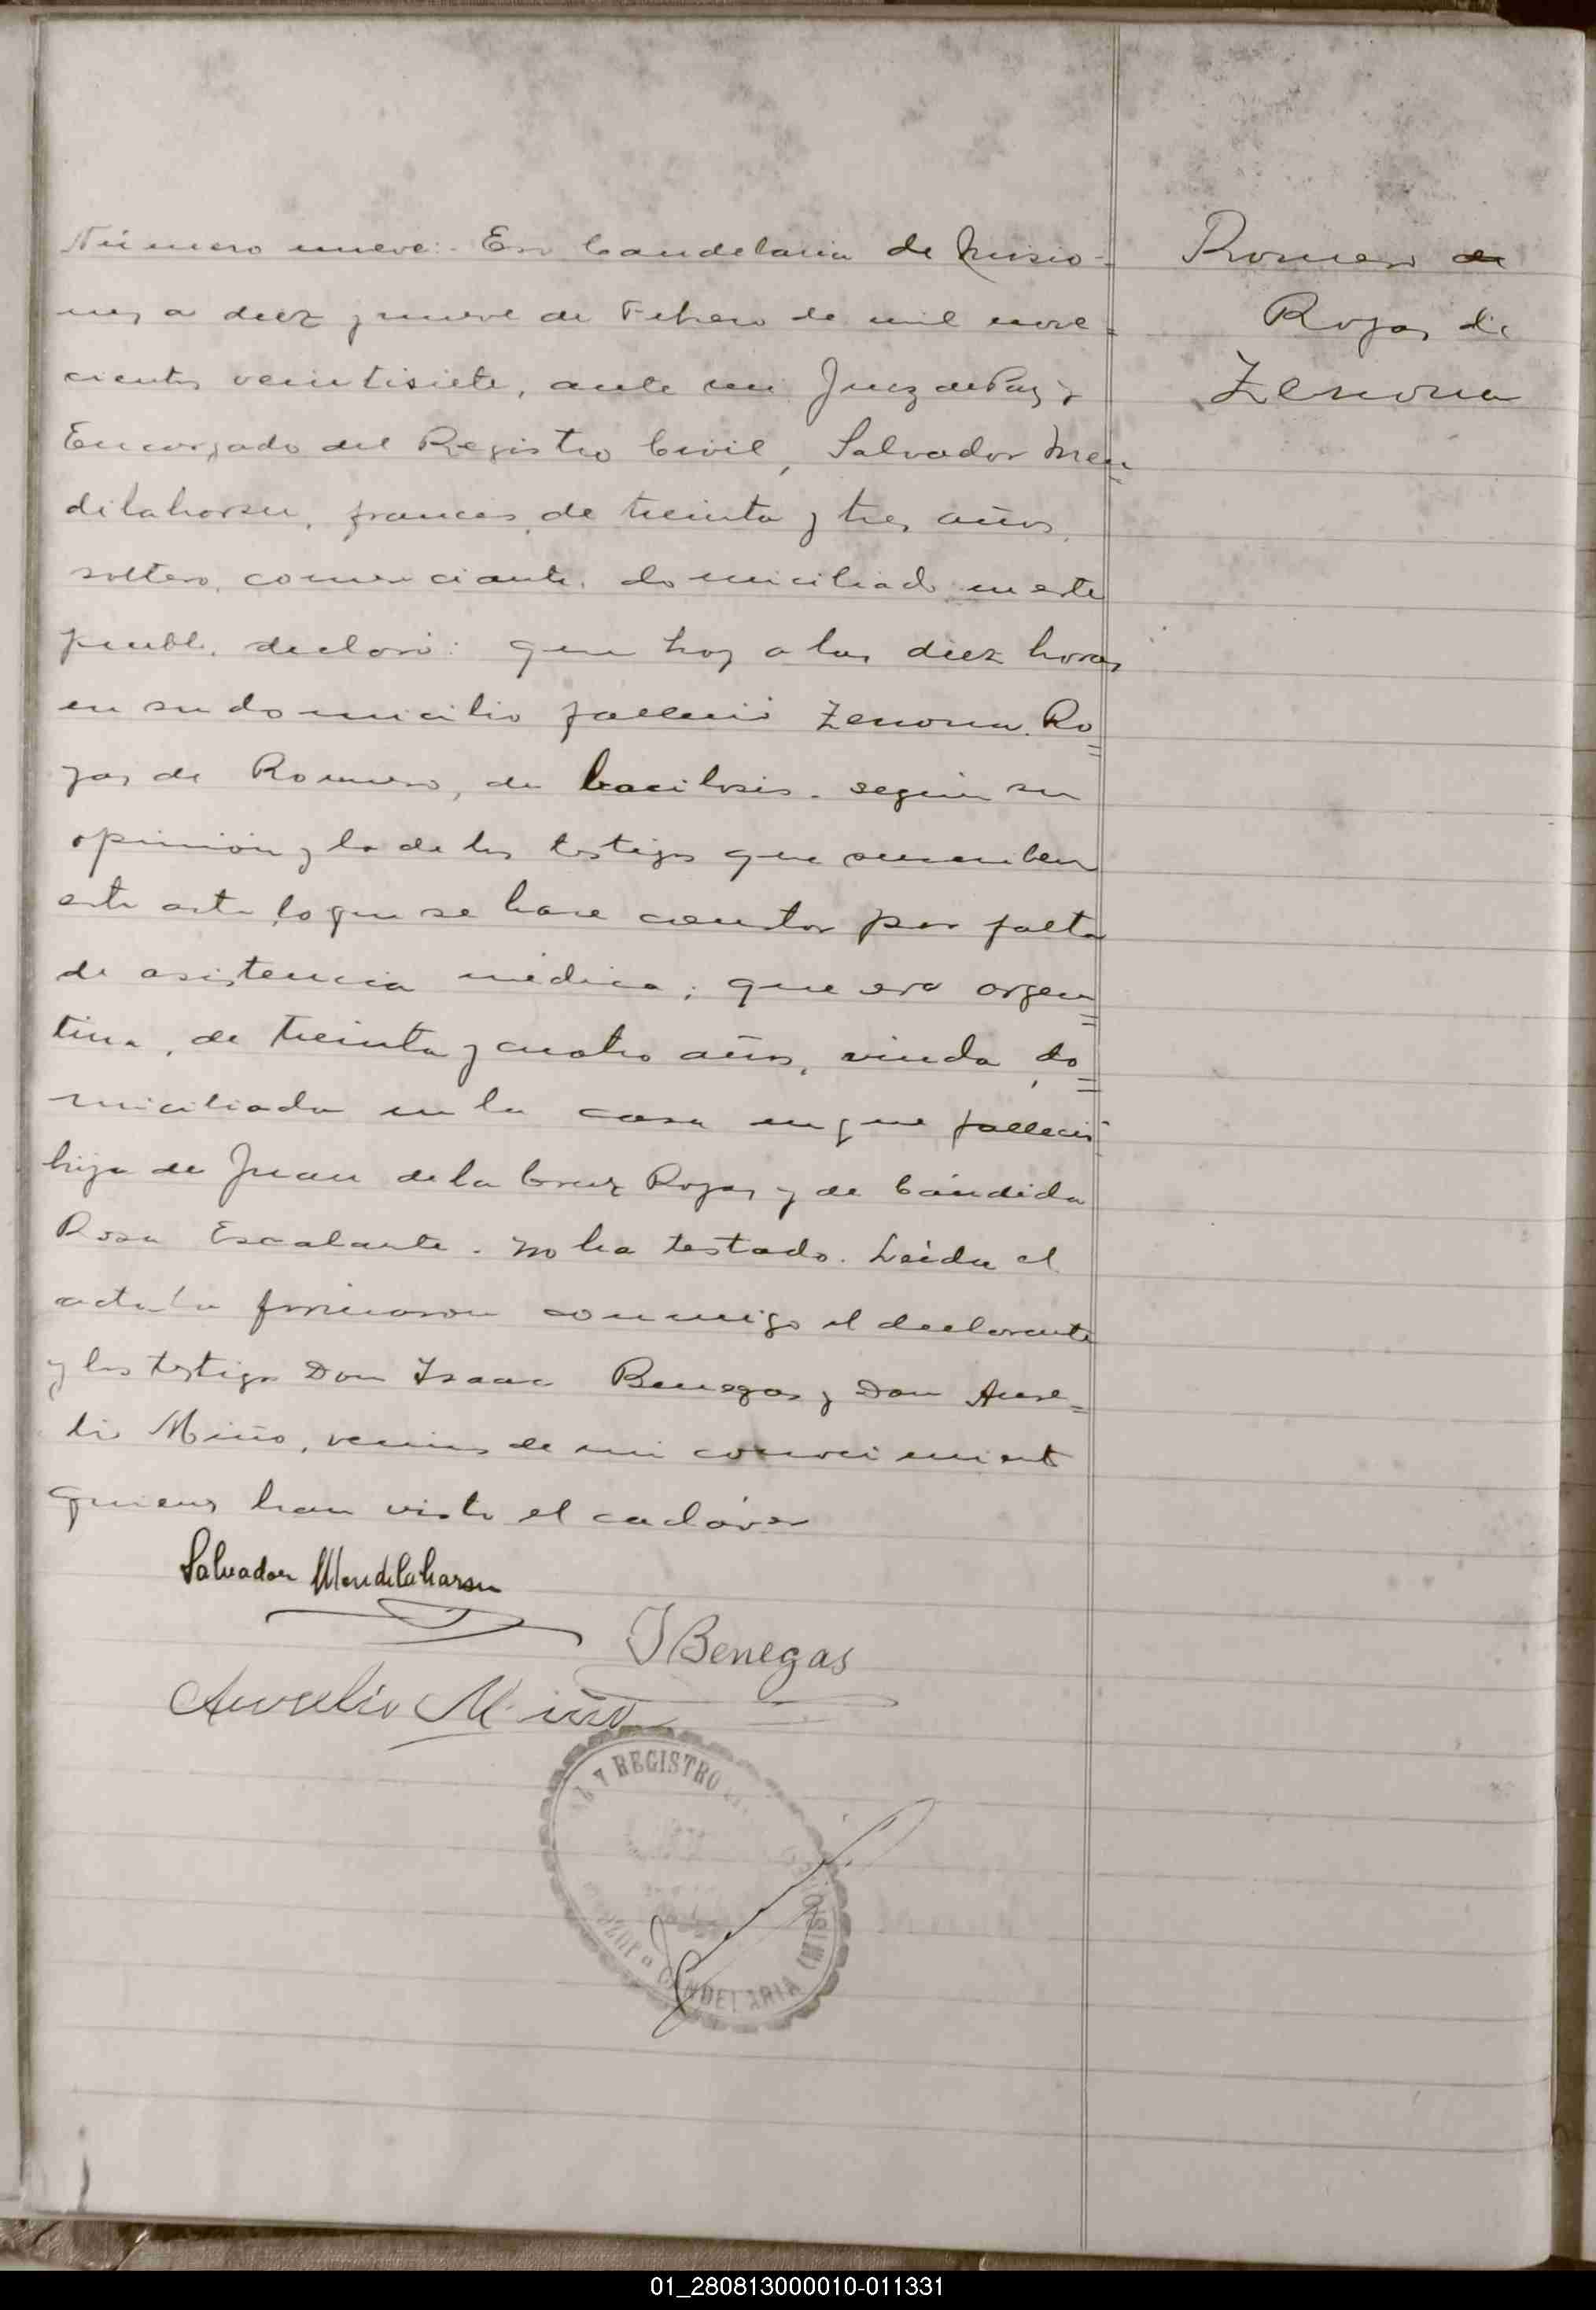 Número nueve:- En Candelaria de Misio-
nes a diez y nueve de Febrero de mil nove=
cientos veintisiete, ante mi Juez de Paz y
Encargado del Registro Civil, Salvador Men=
dilaharsu, frances, de treinta y tres años,
soltero, comerciante, domiciliado en este
pueblo, declaró: que hoy a las diez horas
en su domicilio falleció Zenona Ro=
jas de Romero, de bacilosis - según su
opinión y la de los testigos que suscriben
este acta, lo que se hace constar por falta
de asistencia médica; que era argen=
tina, de treinta y cuatro años, viuda, do=
miciliada en la casa en que falleció
hija de Juan de la Cruz Rojas y de Cándida
Rosa Escalante. No ha testado. Leída el
acta la firmaron conmigo el declarante
y los testigos Don Isaac Benegas y Don Aure=
lio Miño, vecinos de mi conocimiento
quienes han visto el cadáver
Salvador Mendilaharsu
I Benegas
Aurelio Miño
Y REGISTRO
CANDELARIA (MISIONES)
Romero de
Rojas de
Zenona
01_280813000010-011331